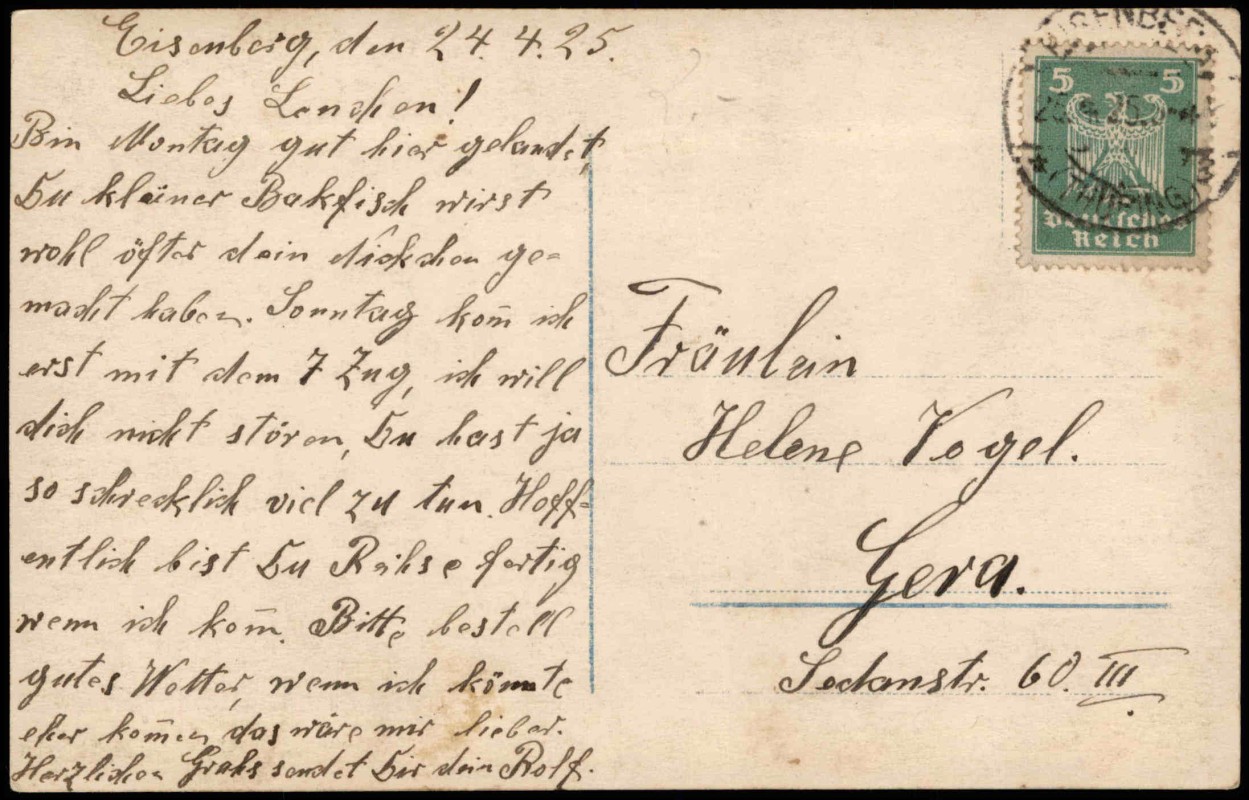 Eisenberg, den 24.4.25.
Liebes Lenchen!
Bin Montag gut hier gelandet,
Du kleiner Bakfisch wirst
wohl öfter dein Nickchen ge-
macht haben. Sonntag kom̄ ich
erst mit dem 7 Zug, ich will
dich nicht stören, Du hast ja
so schrecklich viel zu tun. Hoff-
entlich bist Du Rihse fertig
wenn ich kom̄. Bitte bestell
gutes Wetter, wenn ich könnte
eher kom̄en das wäre mir lieber.
Herzlichen Gruhs sendet Dir dein Rolf.
EISENBERG
25.4.25.
(THÜRING.)
5 5
Deutsches
Reich
Fräulein
Helene Vogel.
Gera.
Sedanstr. 60. III